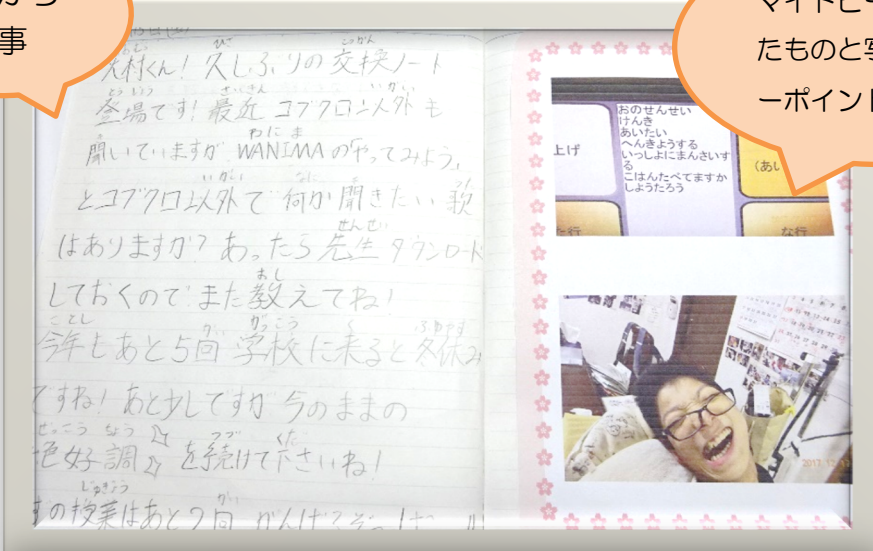 から
事
マイトビ
たものと写
ーポイント
村くん! 久しぶりの交換ノート
登場です! 最近 コブクロ以外も
聞いていますが WANIMAの「やってみよう」
とコブクロ以外で 何か聞きたい歌
はありますか? あったら先生 ダウンロード
しておくので また教えてね!
今年もあと5回 学校に来ると 冬休み
ですね! あと少しですが 今のままの
色好調 を続けて下さいね!
の授業はあと2回
おのせんせい
けんき
あいたい
へんきようする
いっしよにまんさいす
る
こはんたべてますか
しようたろう
上げ
(あい
た行
な行
2017